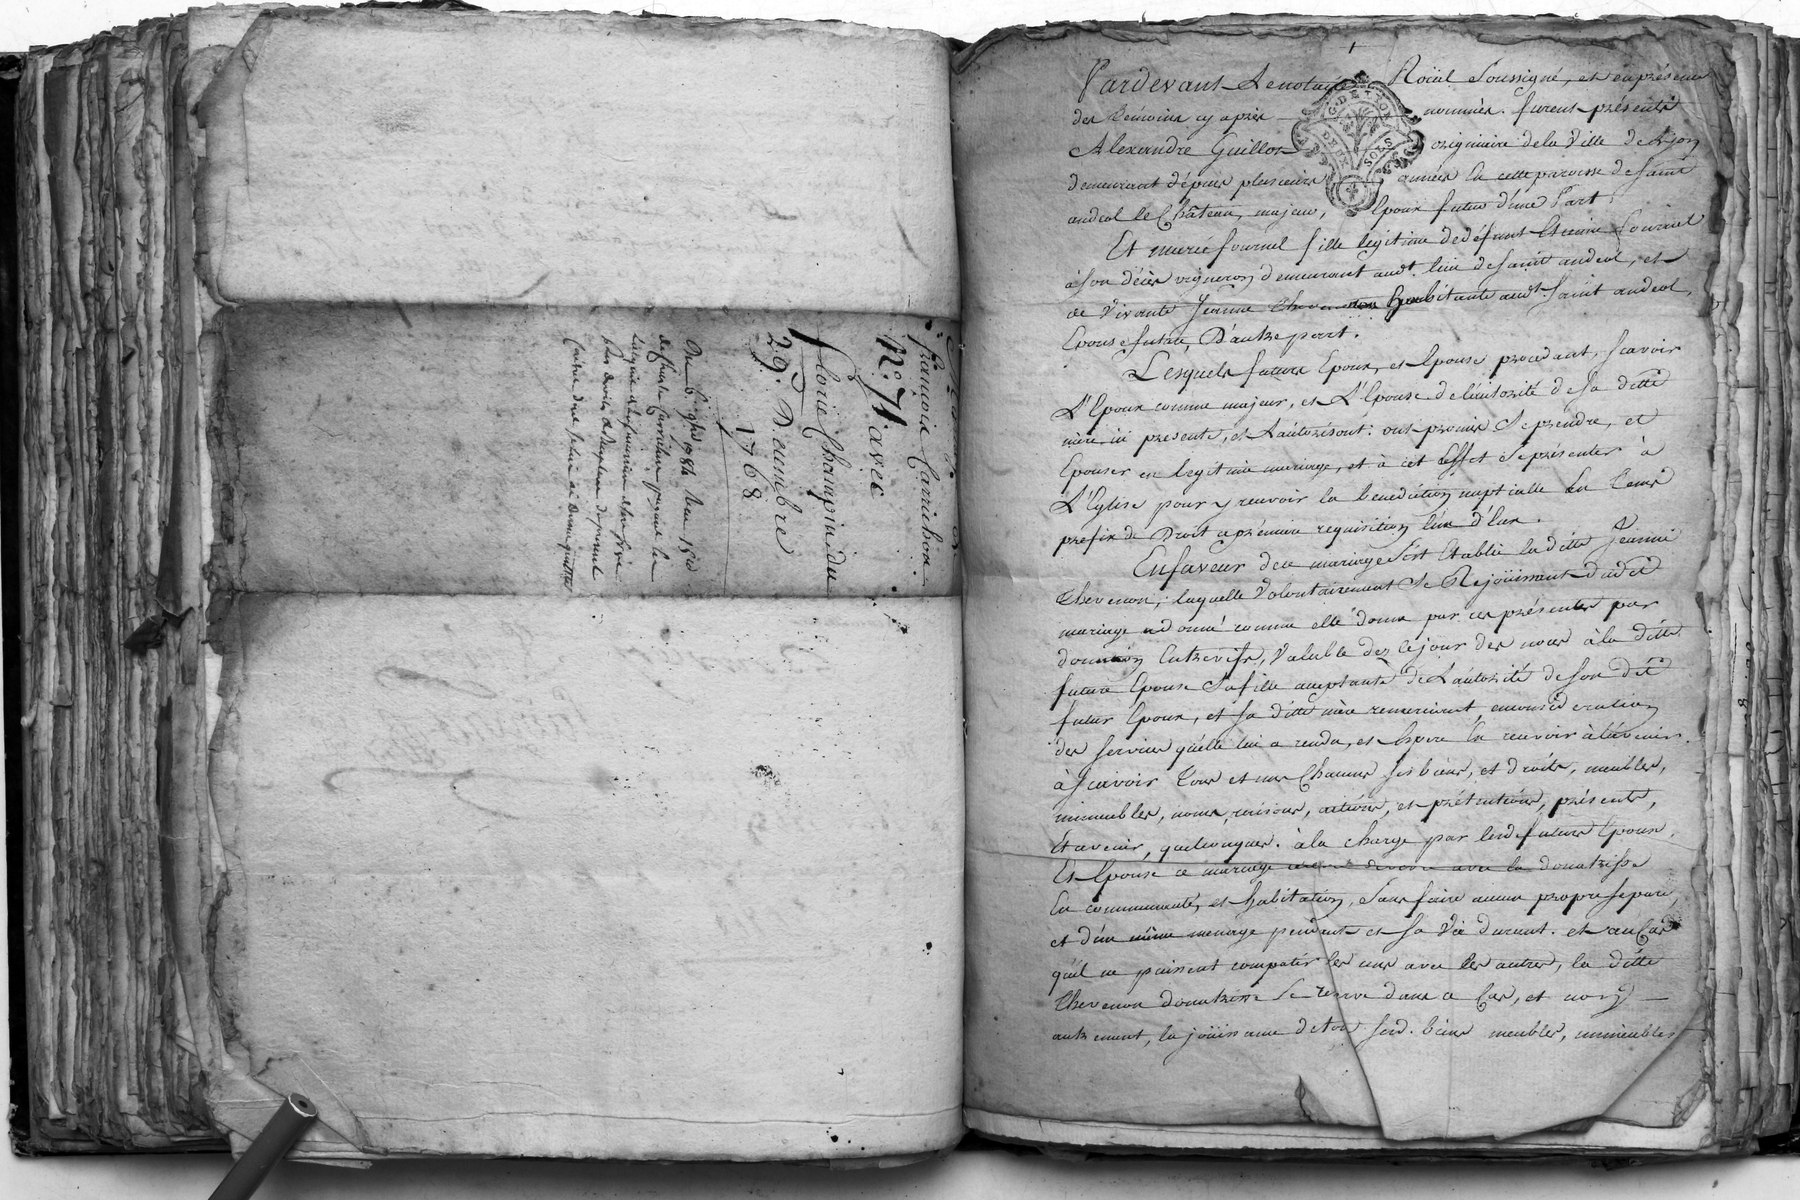 François Camichon
N.º 71 avec
Florie Champin du
29. Decembre
1768
Pardevant Le notaire Roïal Soussigné, et en présence
des témoins cy après nommés. furent présents
G. DE LYON
DEUX SOLS
Alexandre Guillot originaire de la Ville de Lyon
demeurant dépuis plusieurs années en cette paroisse de saint
andeol le Château, majeur, Epoux futur d'une Part;
Et marie fournel fille legitime de défunt Etienne fournel
à son décès vigneron demeurant aud.t lieu de saint andeol, et
de vivante Jeanne Thevenon habitante aud.t saint andeol,
Epouse future, D'autre part.
Lesquels futurs Epoux, et Epouse procedant, scavoir
L'Epoux comme majeur, et L'Epouse de l'autorité de sa ditte
mère ici presente, et L'autorisant; ont promis se prendre, et
Epouser en legitime mariage, et à cet Effet se présenter à
L'Eglise pour y recevoir la benediction nuptialle En tems
prefix de Droit a prémière requisition l'un d'eux.
En faveur de ce mariage s'est Etablie la ditte Jeanne
Thevenon, laquelle volontairement se Réjoüissant dudit
mariage a donné comme elle donne par ces présentes par
donnation Entrevifs, valable dez ce jour des nocés à la ditte
future Epouse sa fille acceptante de L'autorité de son dit
futur Epoux, et sa ditte mère remerciant en considération
des services qu'elle lui a rendu, et Espere En recevoir à l'avenir.
à scavoir Tous et uns chacuns ses biens, et droits, meubles,
immeubles, noms, raisons, actions, et prétentions, présents,
Et avenir, quelconques. à la charge par lesd. futurs Epoux,
Et Epouse ce mariage de vivre avec la donatrisse
En communauté, et habitation, sans faire aucun propre séparé,
et d'un même menage pendant et sa vie durant. et au Cas
qu'il ne puissent compatir les uns avec les autres, la ditte
Thevenon donatrisse se reserve dans ce Cas, et non
autrement, la joüissance de tous sesd. biens meubles, immeubles